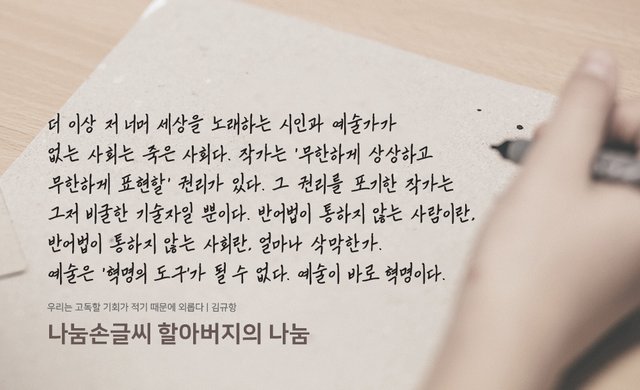 더 이상 저 너머 세상을 노래하는 시인과 예술가가
없는 사회는 죽은 사회다. 작가는 '무한하게 상상하고
무한하게 표현할' 권리가 있다. 그 권리를 포기한 작가는
그저 비굴한 기술자일 뿐이다. 반어법이 통하지 않는 사람이란,
반어법이 통하지 않는 사회란, 얼마나 삭막한가.
예술은 '혁명의 도구'가 될 수 없다. 예술이 바로 혁명이다.
우리는 고독할 기회가 적기 때문에 외롭다 | 김규항
나눔손글씨 할아버지의 나눔